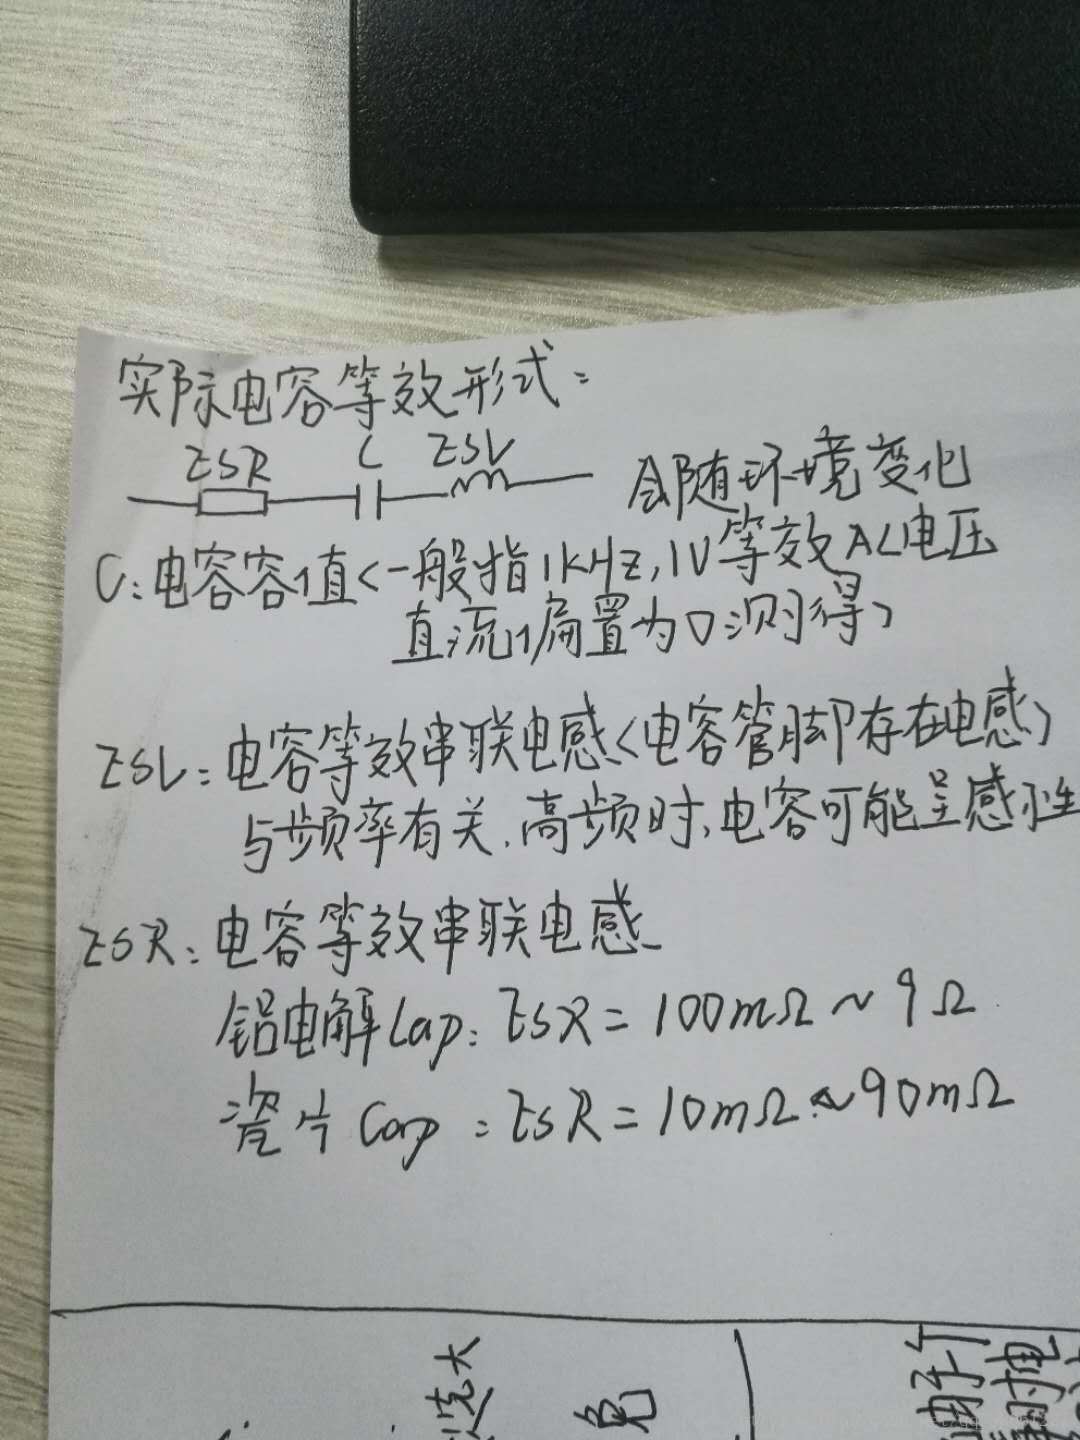 实际电容等效形式:
ESR C ESL
会随环境变化
C:电容容值<一般指1KHz,1V等效AC电压
直流偏置为0测得>
ESL:电容等效串联电感<电容管脚存在电感>
与频率有关.高频时,电容可能呈感性
ESR:电容等效串联电感
铝电解Cap:ESR=100mΩ~9Ω
瓷片Cap:ESR=10mΩ~90mΩ
免